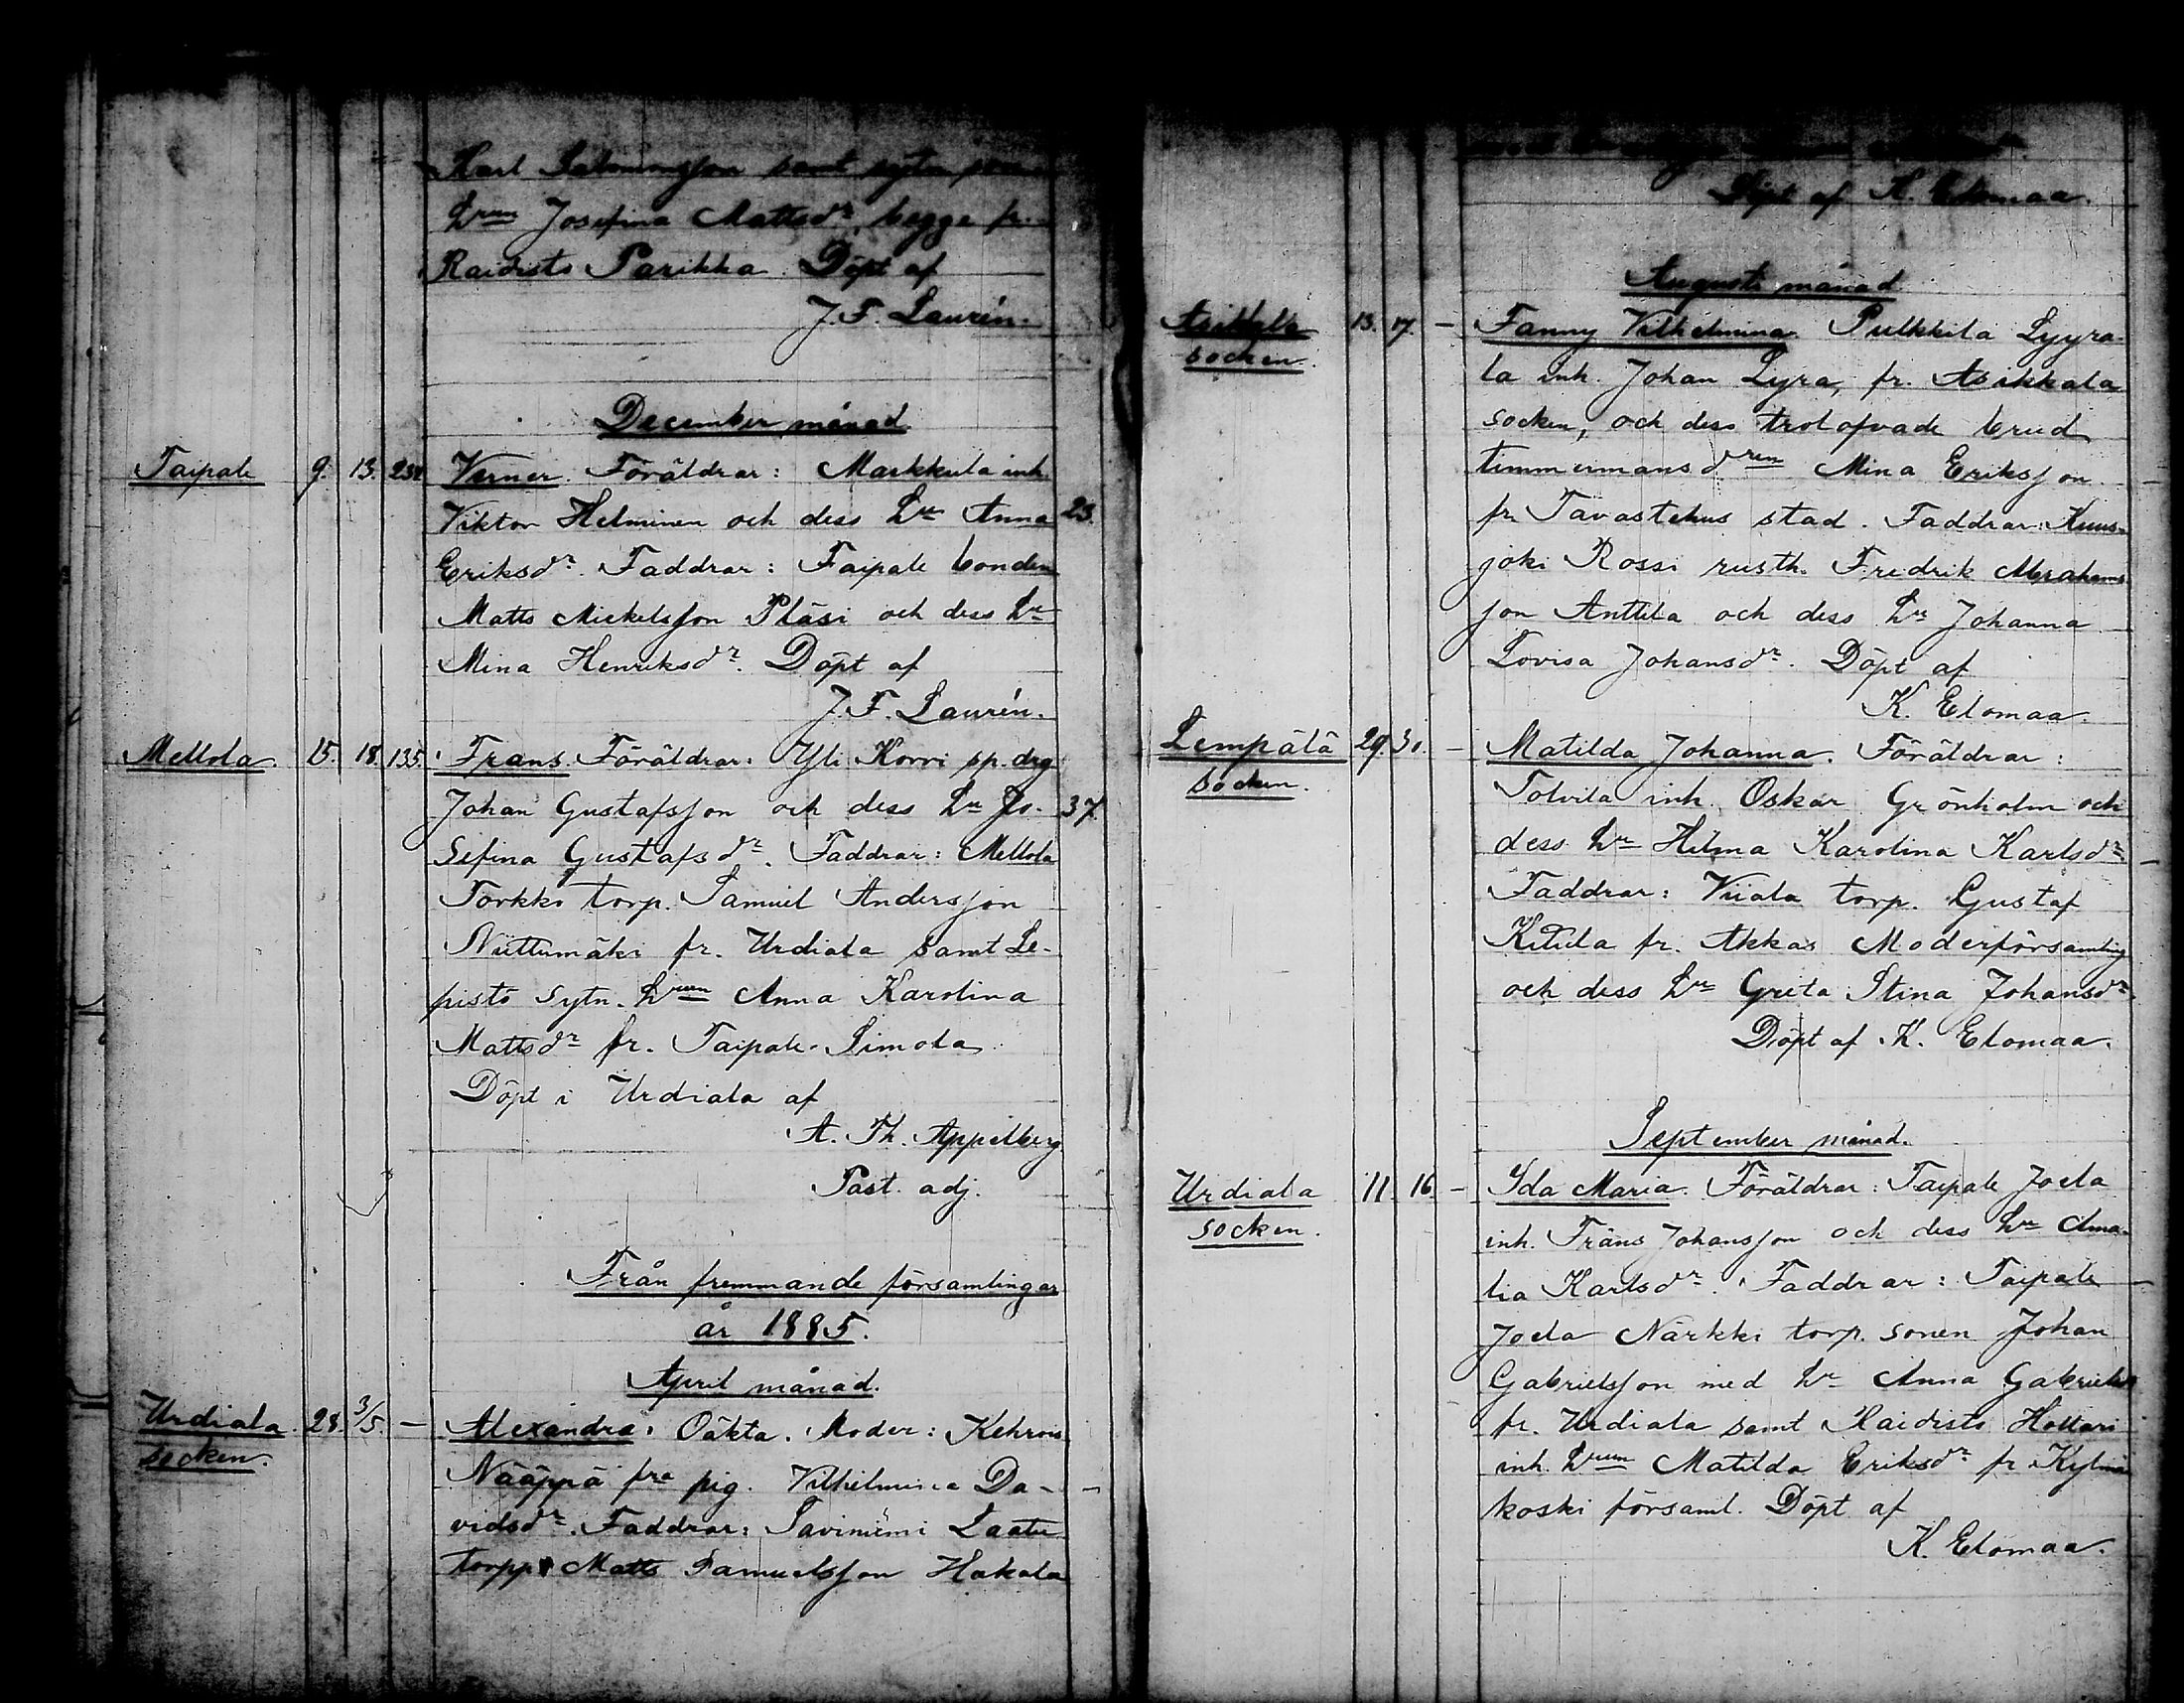 Karl Salomonsson samt sytn
Hrun Josefina Mattsdr, begge fr.
Raidisto Parikka Döpt af
J. F. Laurén.
December månad
Taipale 9. 13. 231 Verner. Föräldrar: Markkula inh.
Viktor Helminen och dess Hu Anna 23.
Eriksdr. Faddrar: Taipale bonden
Matts Mickelsson Pläsi och dess Hu
Mina Henriksdr. Döpt af
J. F. Laurén.
Mellola. 15. 18. 135. Frans. Föräldrar: Yli Korvi sp. drg
Johan Gustafsson och dess Hu Jo- 37
sefina Gustafsdr. Faddrar: Mellola
Torkko torp. Samuel Andersson
Niittumäki fr. Urdiala samt Le-
pistö sytn. Hrun Anna Karolina
Mattsdr fr. Taipale-Simola
Döpt i Urdiala af
A. Th. Appelberg
Past. adj.
Från fremmande församlingar
år 1885.
April månad.
Urdiala 28. 3/5. — Alexandra. Oäkta. Moder: Kehrois
socken.
Nääppä fra pig. Vilhelmina Da- -
vidsdr. Faddrar: Saviniemi Laatu
torpp. Matts Samuelsson Hakala
Döpt af K. Elomaa.
Augusti månad
Asikkala 13. 17. — Fanny Vilhelmina. Pulkkila Lyyra-
socken.
la inh. Johan Lyra, fr. Asikkala
socken, och dess trolofvade brud
timmermansdren Mina Eriksson -
fr. Tavastehus stad. Faddrar: Kuus-
joki Rossi rusth. Fredrik Abrahams-
son Anttila och dess Hu Johanna
Lovisa Johansdr. Döpt af
K. Elomaa.
Lempälä 29. 30. — Matilda Johanna. Föräldrar:
socken.
Tolvila inh. Oskar Grönholm och
dess Hu Hilma Karolina Karlsdr. -
Faddrar: Viiala torp. Gustaf
Kitula fr. Akkas Moderförsamling
och dess Hu Greta Stina Johansdr.
Döpt af K. Elomaa.
September månad.
Urdiala 11. 16. — Ida Maria. Föräldrar: Taipale Joela
socken.
inh. Frans Johansson och dess Hu Ama-
lia Karlsdr. Faddrar: Taipale -
Joela Närkki torp. sonen Johan
Gabrielsson med Hu Anna Gabrielsd
fr. Urdiala samt Raidisto Hollari
inh. Hrun Matilda Eriksdr fr Kylmä
koski församl. Döpt af
K. Elomaa.